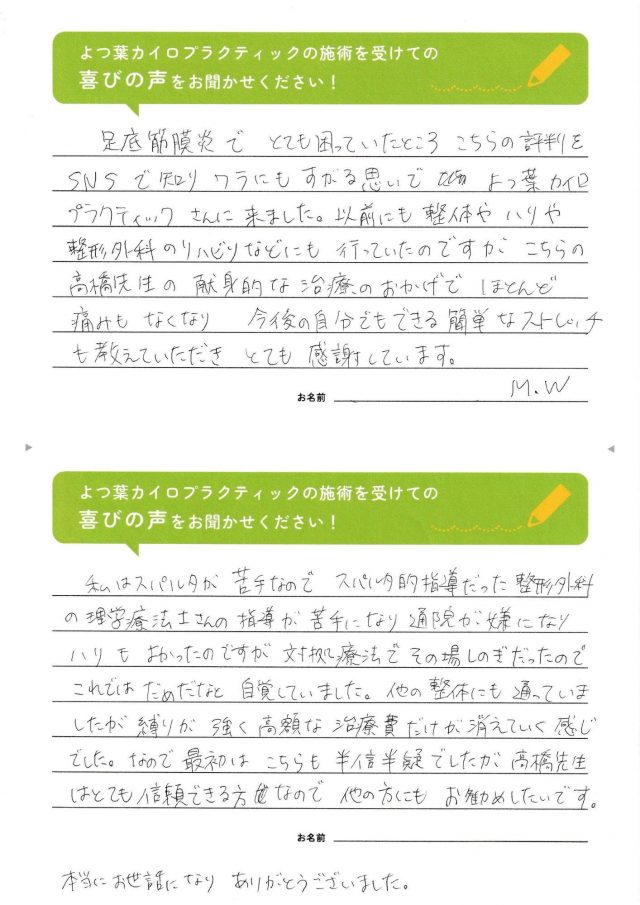 よつ葉カイロプラクティックの施術を受けての
喜びの声をお聞かせください！
足底筋膜炎で とても困っていたところ こちらの評判を
SNSで知り ワラにもすがる思いで よつ葉カイロ
プラクティックさんに来ました。以前にも 整体や ハリや
整形外科のリハビリなどにも 行っていたのですが こちらの
高橋先生の 献身的な治療のおかげで ほとんど
痛みも なくなり 今後の自分でもできる簡単なストレッチ
も教えていただき とても 感謝しています。
M.W
お名前
よつ葉カイロプラクティックの施術を受けての
喜びの声をお聞かせください！
私はスパルタが 苦手なので スパルタ的指導だった 整形外科
の理学療法士さんの指導が苦手になり 通院が嫌になり
ハリも よかったのですが 対処療法でその場しのぎだったので
これでは だめだなと 自覚していました。他の整体にも 通っていま
したが 縛りが 強く 高額な 治療費だけが消えていく感じ
でした。なので 最初は こちらも 半信半疑でしたが 高橋先生
はとても信頼できる方なので 他の方にも お勧めしたいです。
お名前
本当にお世話になり ありがとうございました。